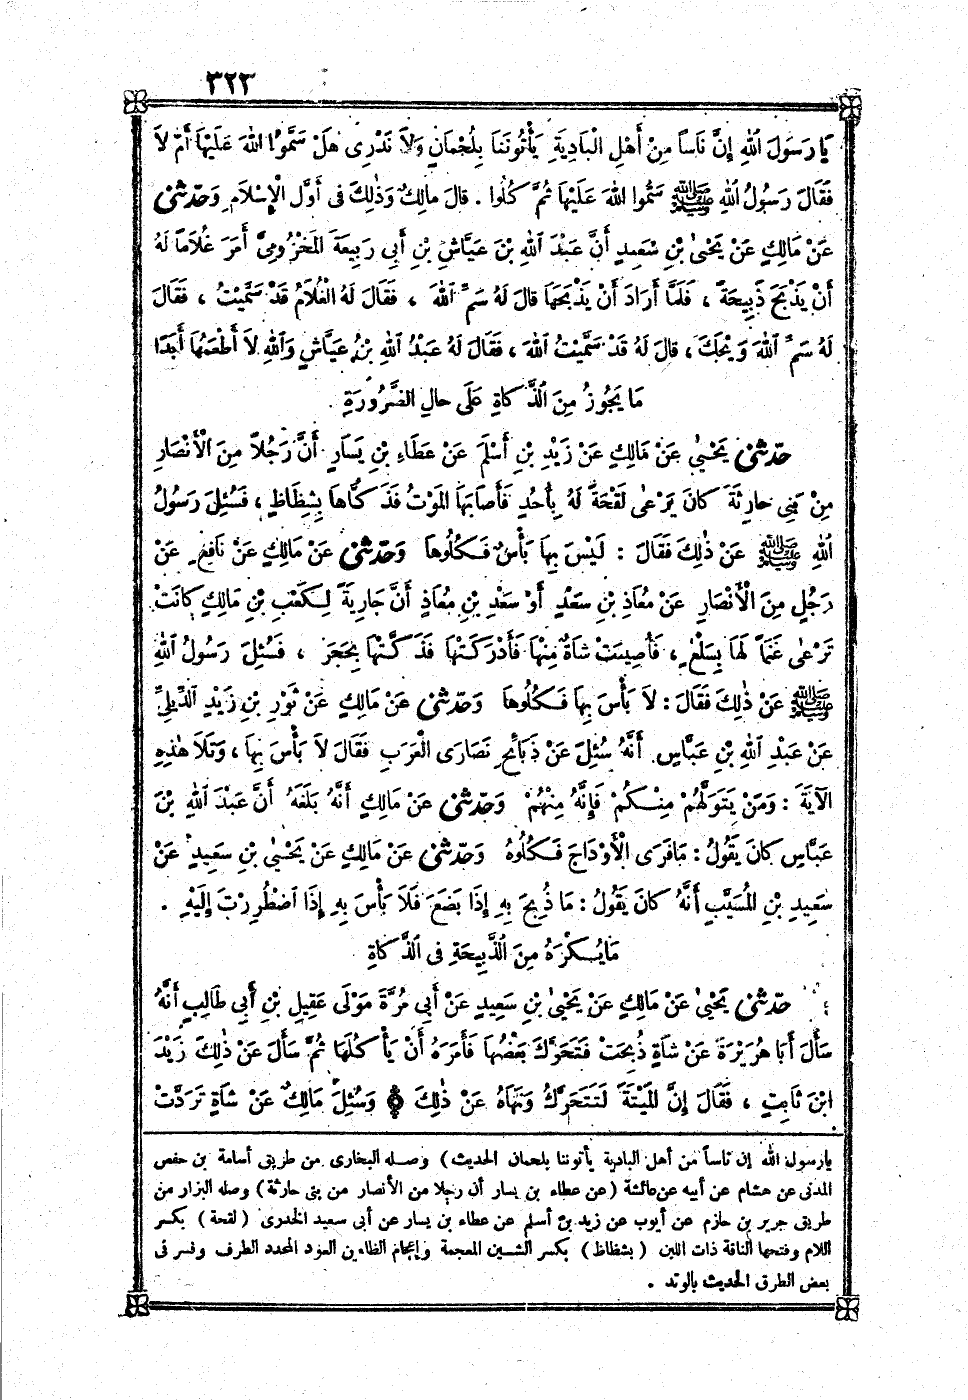 ٣٢٣
يَا رَسُولَ اللهِ إِنَّ نَاساً مِنْ أَهْلِ الْبَادِيَةِ يَأْتُونَنَا بِلُحْمَانٍ وَلاَ نَدْرِى هَلْ سَمَّوُا اللهَ عَلَيْهَا أَمْ لاَ
فَقَالَ رَسُولُ اللهِ ﷺ سَمُّوا اللهَ عَلَيْهَا ثُمَّ كُلُوا . قالَ مالِكٌ وَذٰلِكَ فى أَوَّلِ الْإِسْلَامِ وَحَدَّثَنِى
عَنْ مَالِكٍ عَنْ يَحْيٰى بْنِ سَعِيدٍ أَنَّ عَبْدَ اللهِ بْنَ عَيَّاشِ بْنِ أَبِى رَبِيعَةَ الْمَخْزُومِىَّ أَمَرَ غُلاَماً لَهُ
أَنْ يَذْبَحَ ذَبِيحَةً ، فَلَمَّا أَرَادَ أَنْ يَذْبَحَهَا قالَ لَهُ سَمِّ اللهَ ، فَقَالَ لَهُ الْغُلاَمُ قَدْ سَمَّيْتُ ، فَقَالَ
لَهُ سَمِّ اللهَ وَيْحَكَ ، قالَ لَهُ قَدْ سَمَّيْتُ اللهَ ، فَقَالَ لَهُ عَبْدُ اللهِ بْنُ عَيَّاشٍ وَاللهِ لاَ أَطْعَمُهَا أَبَدًا
مَا يَجُوزُ مِنَ الذَّكَاةِ عَلَى حالِ الضَّرُورَةِ .
حَدَّثَنِى يَحْيٰى عَنْ مَالِكٍ عَنْ زَيْدِ بْنِ أَسْلَمَ عَنْ عَطَاءِ بْنِ يَسَارٍ أَنَّ رَجُلاً مِنَ الْأَنْصَارِ
مِنْ بَنِى حارِثَةَ كانَ يَرْعٰى لَقْحَةً لَهُ بِأُحُدٍ فَأَصَابَهَا المَوْتُ فَذَكَّاهَا بِشِظَاظٍ ، فَسُئِلَ رَسُولُ
اللهِ ﷺ عَنْ ذٰلِكَ فَقَالَ : لَيْسَ بِهَا بَأْسٌ فَكُلُوهَا وَحَدَّثَنِى عَنْ مَالِكٍ عَنْ نَافِعٍ عَنْ
رَجُلٍ مِنَ الْأَنْصَارِ عَنْ مُعَاذِ بْنِ سَعْدٍ أَوْ سَعْدِ بْنِ مُعَاذٍ أَنَّ جَارِيَةً لِكَعْبِ بْنِ مَالِكٍ كانَتْ
تَرْعٰى غَنَماً لَهَا بِسَلْعٍ ، فَأُصِيبَتْ شَاةٌ مِنْهَا فَأَدْرَكَتْهَا فَذَكَّتْهَا بِحَجَرٍ ، فَسُئِلَ رَسُولُ اللهِ
ﷺ عَنْ ذٰلِكَ فَقَالَ : لاَ بَأْسَ بِهَا فَكُلُوهَا وَحَدَّثَنِى عَنْ مَالِكٍ عَنْ ثَوْرِ بْنِ زَيْدٍ الدِّيلِىِّ
عَنْ عَبْدِ اللهِ بْنِ عَبَّاسٍ أَنَّهُ سُئِلَ عَنْ ذَبَائِحِ نَصَارَى الْعَرَبِ فَقَالَ لاَ بَأْسَ بِهَا ، وَتَلاَ هٰذِهِ
الآيَةَ : وَمَنْ يَتَوَلَّهُمْ مِنْكُمْ فَإِنَّهُ مِنْهُمْ وَحَدَّثَنِى عَنْ مَالِكٍ أَنَّهُ بَلَغَهُ أَنَّ عَبْدَ اللهِ بْنَ
عَبَّاسٍ كانَ يَقُولُ : مَا فَرَى الْأَوْدَاجَ فَكُلُوهُ وَحَدَّثَنِى عَنْ مَالِكٍ عَنْ يَحْيٰى بْنِ سَعِيدٍ عَنْ
سَعِيدِ بْنِ المُسَيَّبِ أَنَّهُ كانَ يَقُولُ : مَا ذُبِحَ بِهِ إِذَا بَضَعَ فَلاَ بَأْسَ بِهِ إِذَا اضْطُرِرْتَ إِلَيْهِ .
مَا يُكْرَهُ مِنَ الذَّبِيحَةِ فى الذَّكَاةِ
حَدَّثَنِى يَحْيٰى عَنْ مَالِكٍ عَنْ يَحْيٰى بْنِ سَعِيدٍ عَنْ أَبِى مُرَّةَ مَوْلَى عَقِيلِ بْنِ أَبِى طَالِبٍ أَنَّهُ
سَأَلَ أَبَا هُرَيْرَةَ عَنْ شَاةٍ ذُبِحَتْ فَتَحَرَّكَ بَعْضُهَا فَأَمَرَهُ أَنْ يَأْكُلَهَا ثُمَّ سَأَلَ عَنْ ذٰلِكَ زَيْدَ
ابْنَ ثَابِتٍ ، فَقَالَ إِنَّ المَيْتَةَ لَتَتَحَرَّكُ وَنَهَاهُ عَنْ ذٰلِكَ ۞ وَسُئِلَ مَالِكٌ عَنْ شَاةٍ تَرَدَّتْ
يارسول الله إن ناساً من أهل البادية يأتوننا بلحمان الحديث) وصله البخارى من طريق أسامة بن حفص
المدنى عن هشام عن أبيه عن عائشة (عن عطاء بن يسار أن رجلا من الأنصار من بنى حارثة) وصله البزار من
طريق جرير بن حازم عن أيوب عن زيد بن أسلم عن عطاء بن يسار عن أبى سعيد الخدرى (لقحة) بكسر
اللام وفتحها الناقة ذات اللبن (بشظاظ) بكسر الشين المعجمة وإعجام الظاءين العود المحدد الطرف وفسر فى
بعض الطرق الحديث بالوتد .